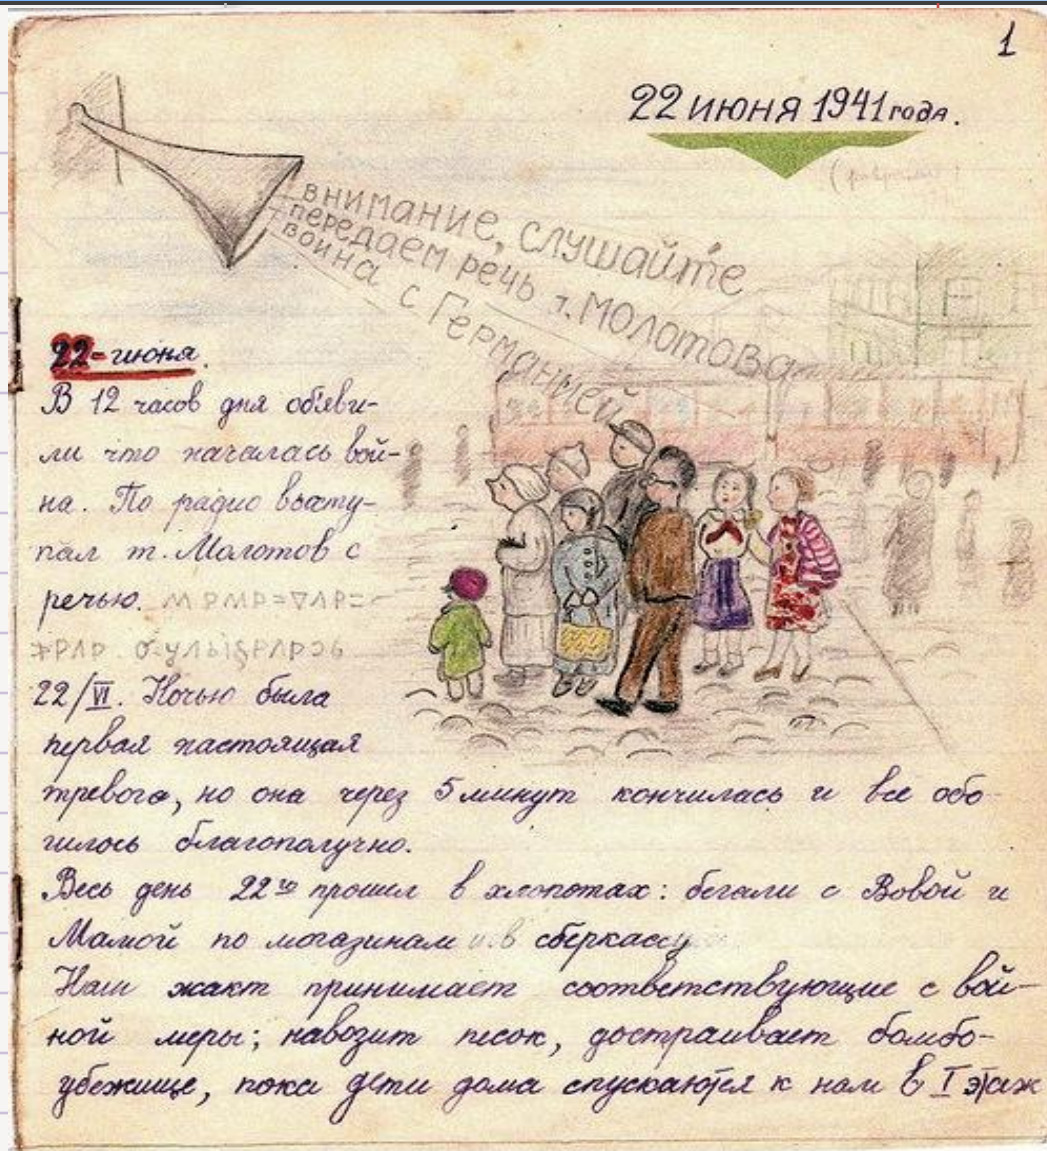 1
22 июня 1941 года.
внимание, слушайте
передаем речь т. Молотова
война с Германией
22-июня.
В 12 часов дня объяви-
ли что началась вой-
на. По радио высту-
пал т. Молотов с
речью.
22/VI. Ночью была
первая настоящая
тревога, но она через 5 минут кончилась и все обо-
шлось благополучно.
Весь день 22го прошел в хлопотах: бегали с Вовой и
Мамой по магазинам и в сберкассу
Наш жакт принимает соответствующие с вой-
ной меры; навозит песок, достраивает бомбо-
убежище, пока дети дома спускаются к нам в I этаж